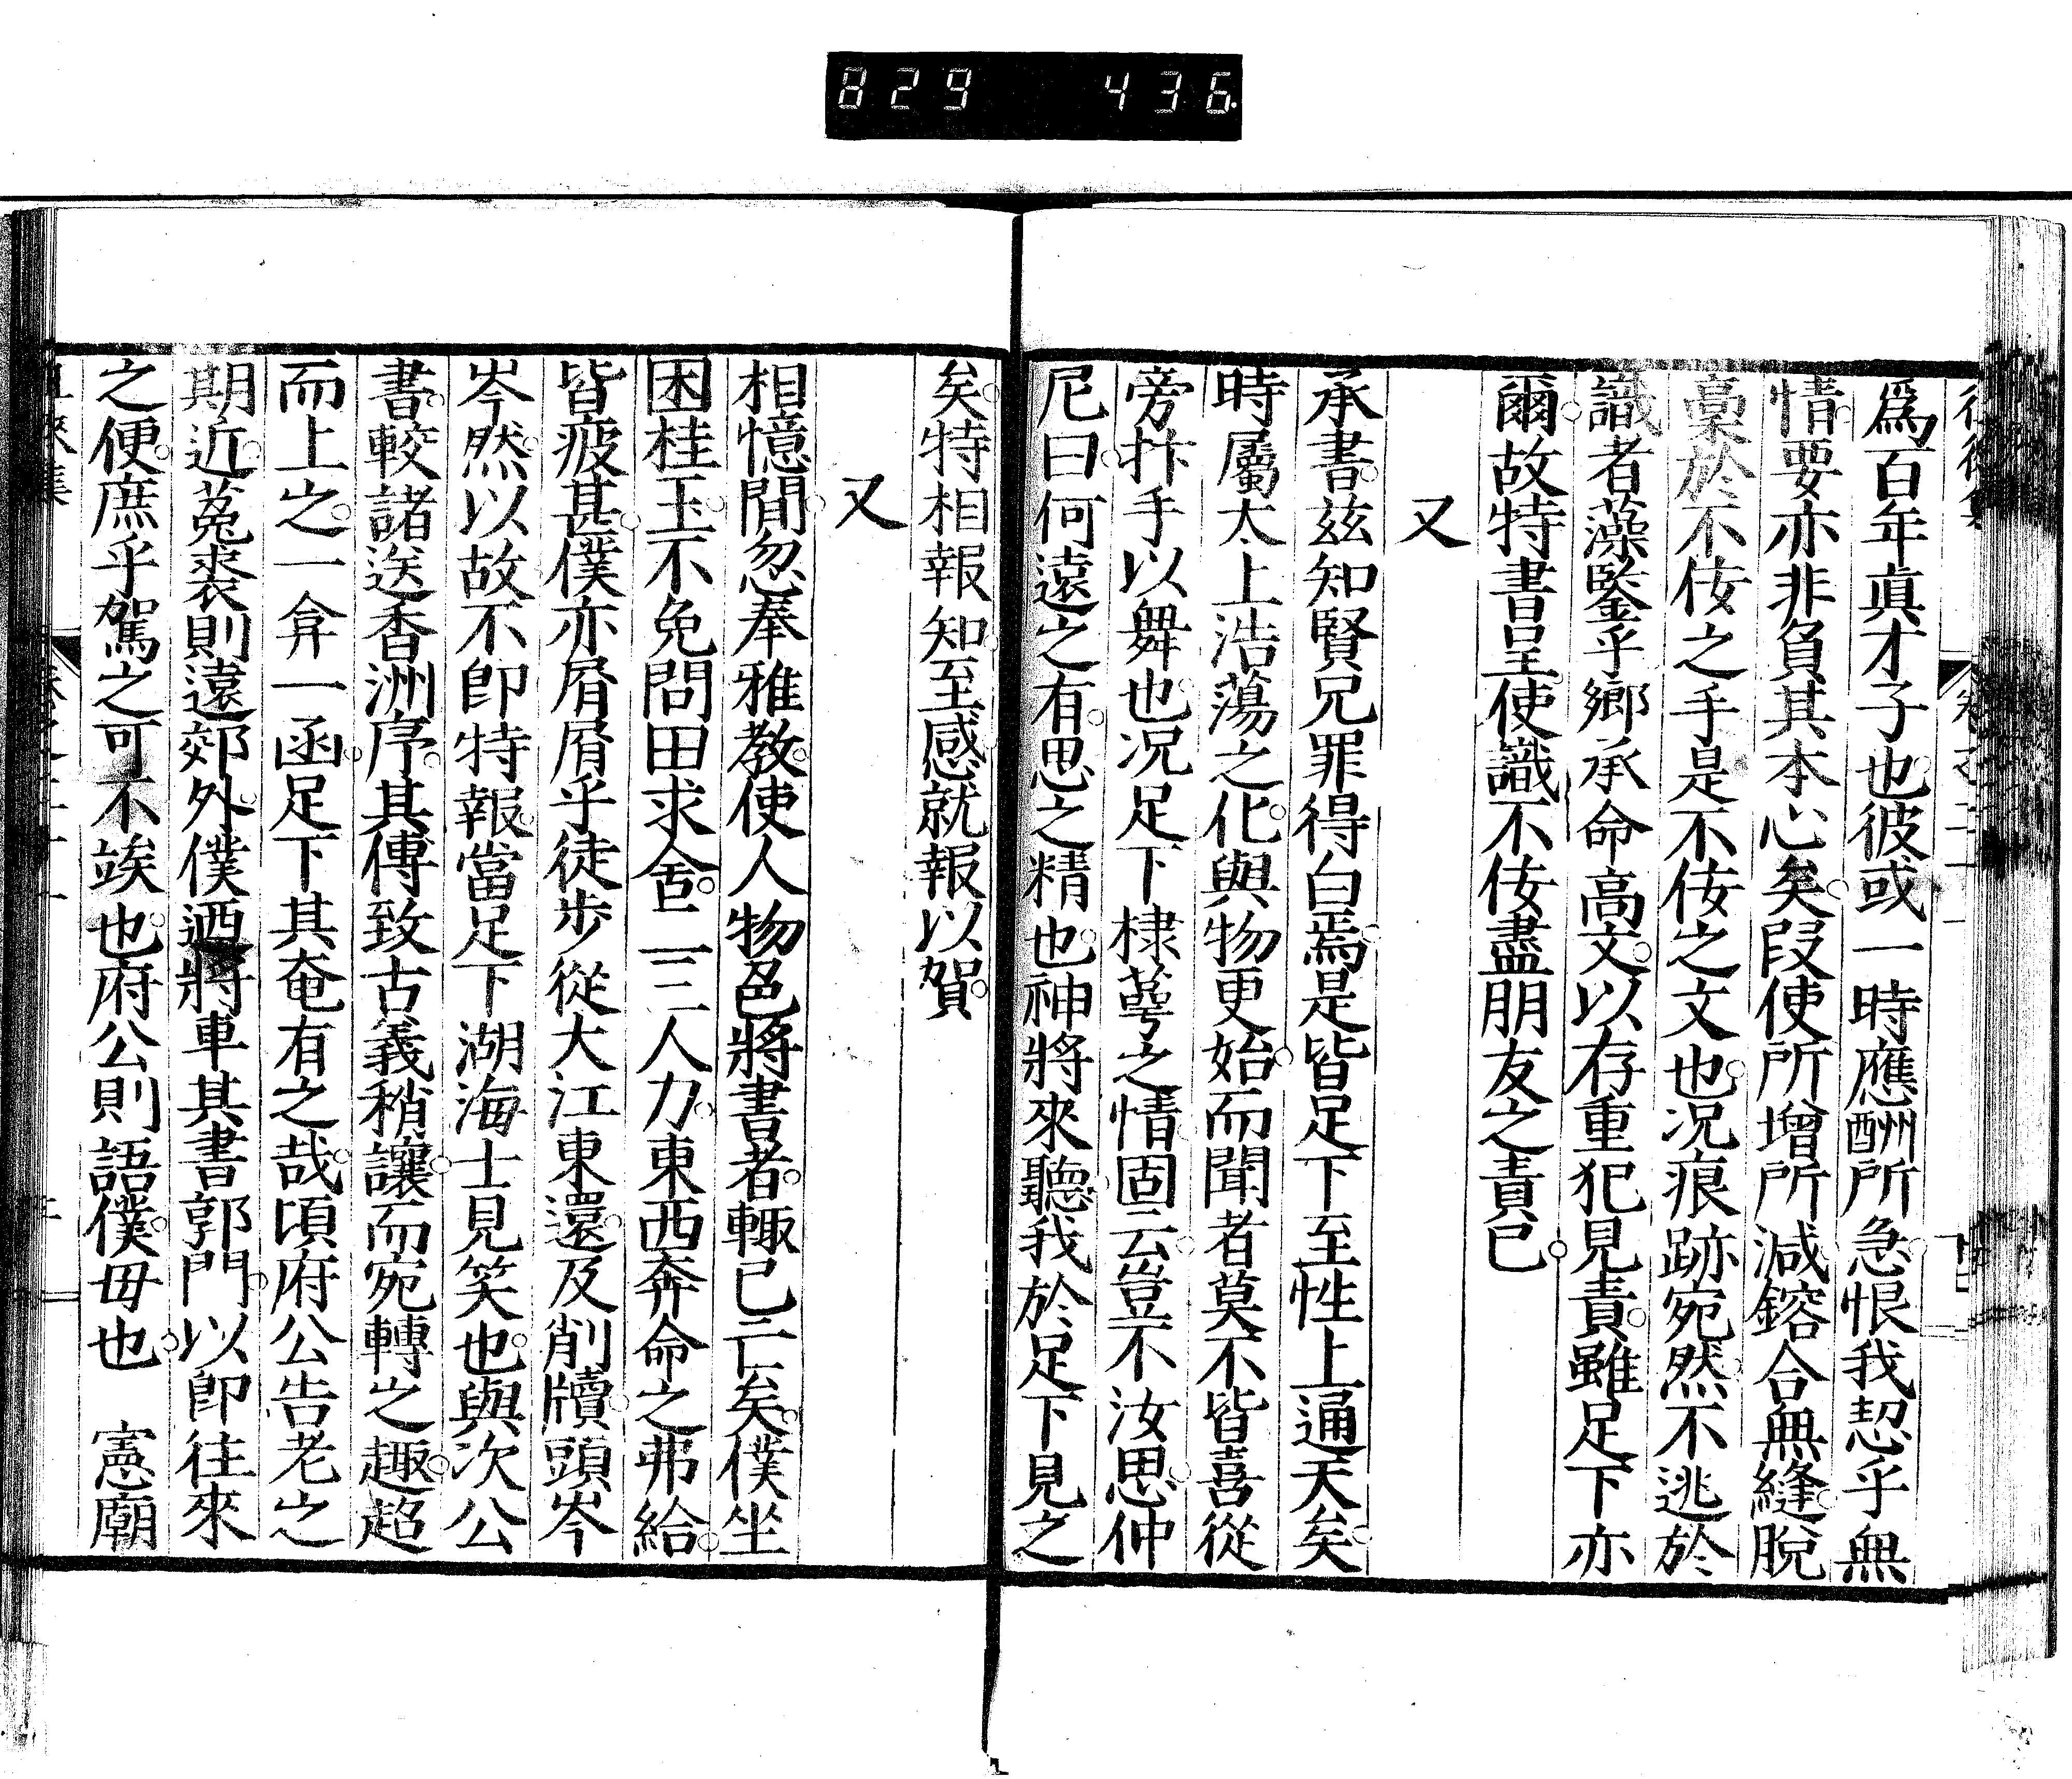 829 436
爲百年眞才子也彼或一時應酬所急恨我恝乎無
情要亦非負其本心矣叚使所增所減鎔合無縫脫
藁於不佞之手是不佞之文也况痕跡宛然不逃於
識者藻鑒乎鄉承命高文以存重犯見責雖足下亦
爾故特書呈使識不佞盡朋友之責已
又
承書玆知賢兄罪得白焉是皆足下至性上通天矣
時屬太上浩蕩之化與物更始而聞者莫不皆喜從
旁抃手以舞也况足下棣萼之情固云豈不汝思仲
尼曰何遠之有思之精也神將來聽我於足下見之
矣特相報知至感就報以賀
又
相憶間忽奉雅教使人物色將書者輙已亡矣僕坐
困桂玉不免問田求舍二三人力東西奔命之弗給
皆疲甚僕亦屑屑乎徒步從大江東還及削牘頭岑
岑然以故不即特報當足下湖海士見笑也與次公
書較諸送香洲序其傳致古義稍讓而宛轉之趣超
而上之一弇一函足下其奄有之哉頃府公告老之
期近菟裘則遠郊外僕迺將車其書郭門以即往來
之便庶乎駕之可不竢也府公則語僕毋也　憲廟